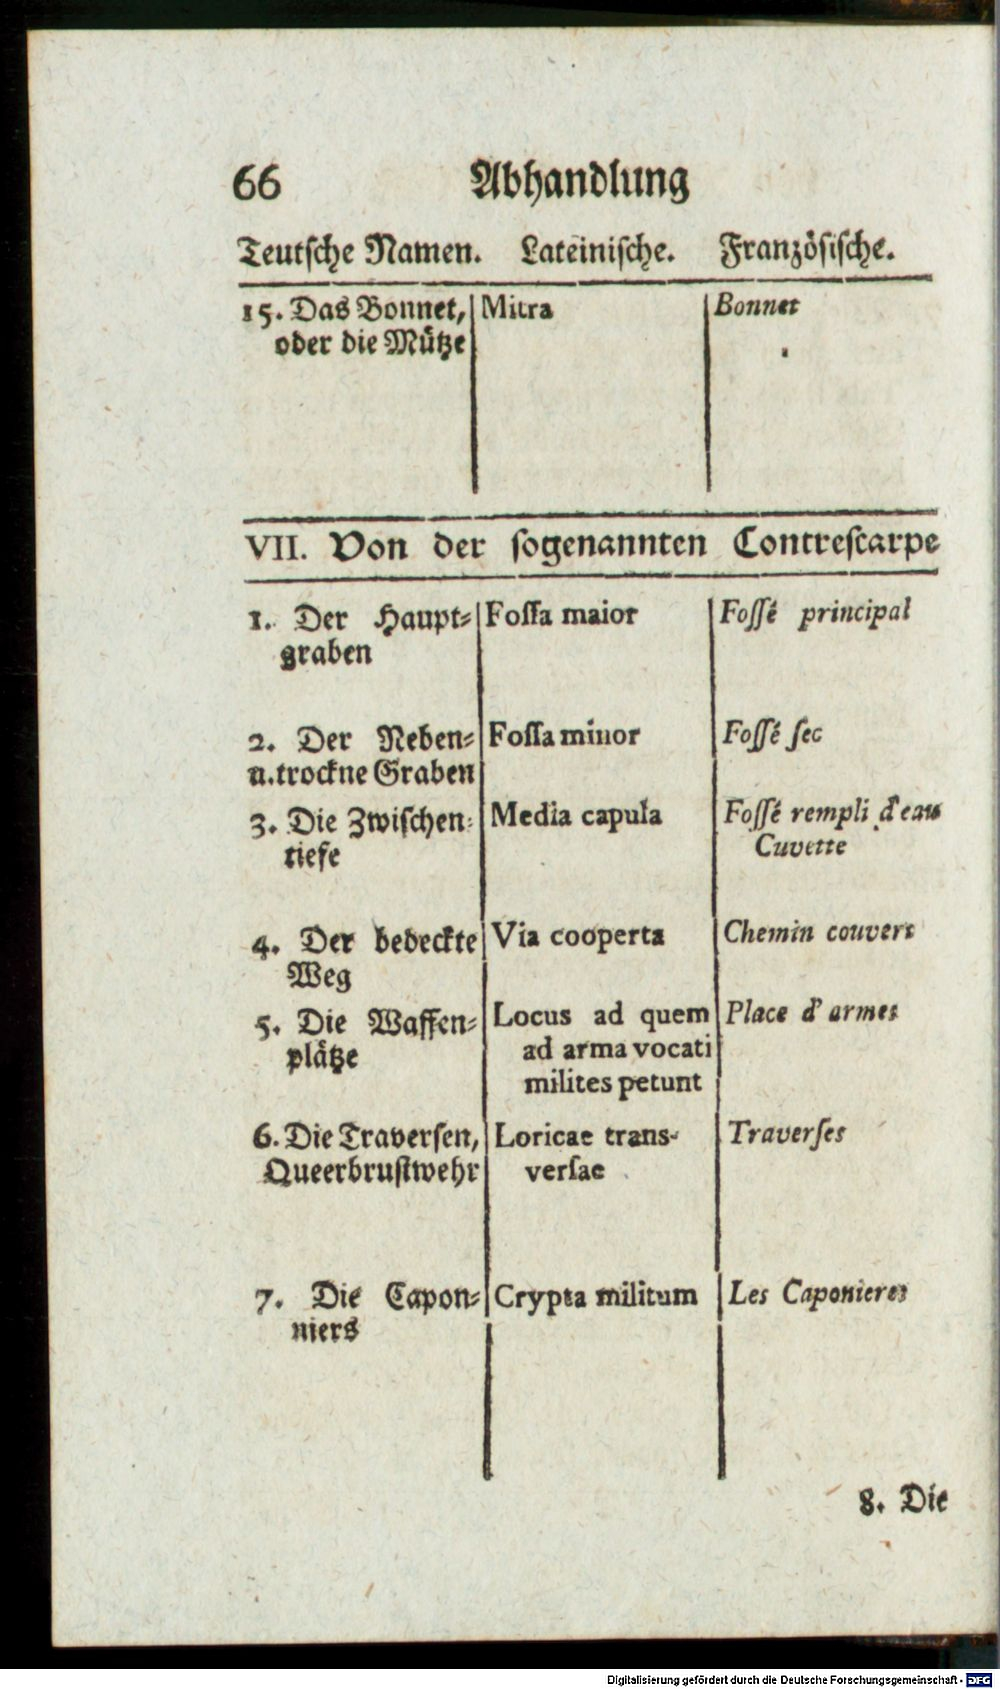 66 Abhandlung
Teutsche Namen. Lateinische. Französische.
15. Das Bonnet, Mitra Bonnet
oder die Mütze
VII. Von der sogenannten Contrescarpe
1. Der Haupt- Fossa maior Fossé principal
graben
2. Der Neben- Fossa minor Fossé sec
u. trockne Graben
3. Die Zwischen- Media capula Fossé rempli d'eau
tiefe Cuvette
4. Der bedeckte Via cooperta Chemin couvert
Weg
5. Die Waffen- Locus ad quem Place d'armes
plätze ad arma vocati
milites petunt
6. Die Traversen, Loricae trans- Traverses
Queerbrustwehr versae
7. Die Capon- Crypta militum Les Caponieres
niers
8. Die
Digitalisierung gefördert durch die Deutsche Forschungsgemeinschaft - DFG